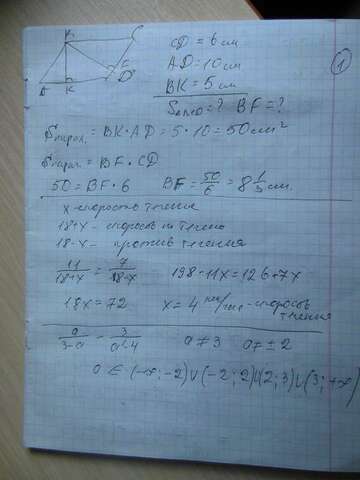 B C
F
A K D
CD = 6 см
AD = 10 см
BK = 5 см
1
SABCD = ? BF = ?
Sпарал. = BK · AD = 5 · 10 = 50 см²
Sпарал. = BF · CD
50 = BF · 6 BF = 50/6 = 8 1/3 см.
x - скорость течения
18+x - скорость по течению
18-x - против течения
11/(18+x) = 7/(18-x) 198 - 11x = 126 + 7x
18x = 72 x = 4 км/час - скорость течения
a/(3-a) - 3/(a²-4) a ≠ 3 a ≠ ± 2
a ∈ (-∞; -2) ∪ (-2; 2) ∪ (2; 3) ∪ (3; +∞)